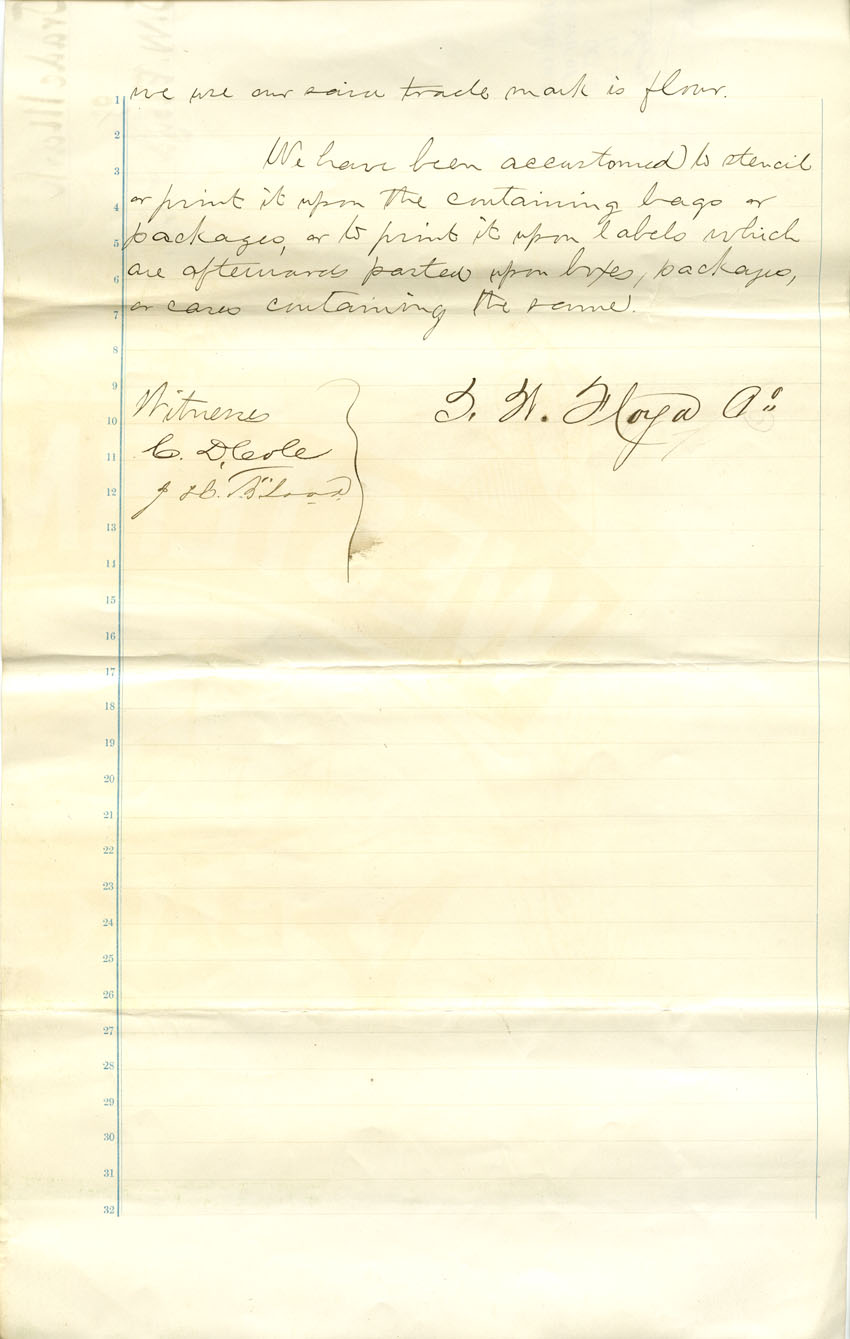 we use our said trade mark is flour.
We have been accustomed to stencil
or print it upon the containing bags or
packages, or to print it upon labels which
are afterwards pasted upon boxes, packages,
or cases containing the same.
Witnesses
C. D. Cole
Floyd
1
2
3
4
5
6
7
8
9
10
11
12
13
14
15
16
17
18
19
20
21
22
23
24
25
26
27
28
29
30
31
32